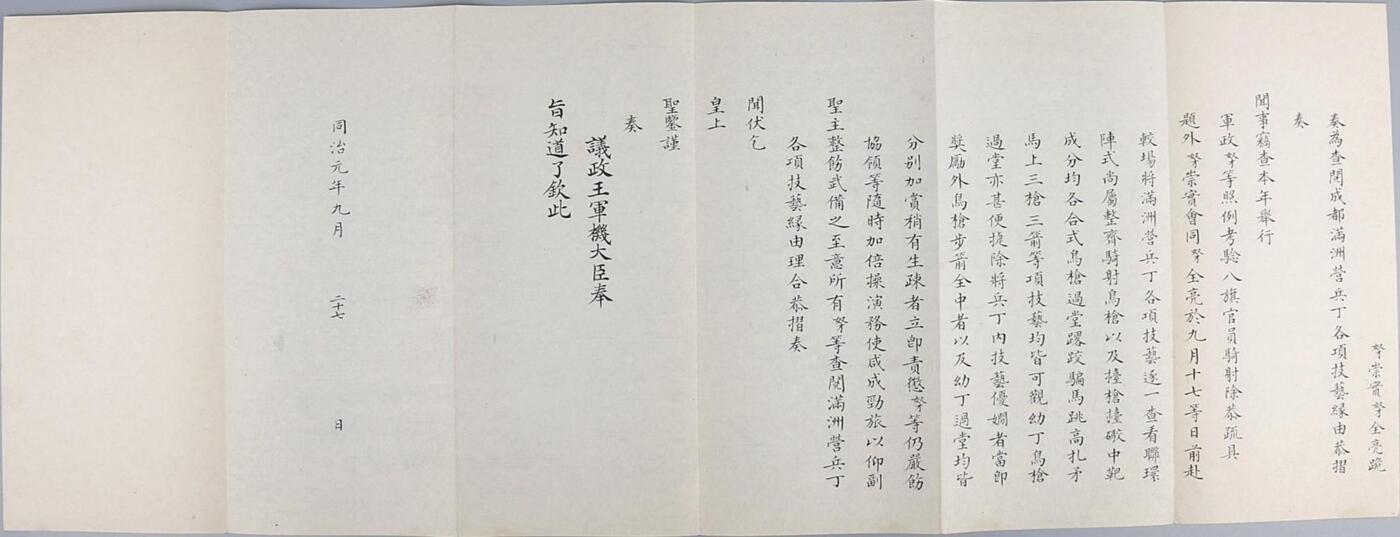 奴崇實奴全亮跪
奏為查閱成都滿洲營兵丁各項技藝緣由恭摺
奏
聞事竊查本年舉行
軍政奴等照例考驗八旗官員騎射除恭疏具
題外奴崇實會同奴全亮於九月十七等日前赴
較場將滿洲營兵丁各項技藝逐一查看聯環
陣式尚屬整齊騎射鳥槍以及擡槍擡礮中靶
成分均各合式鳥槍過堂躧跤騙馬跳高扎矛
馬上三槍三箭等項技藝均皆可觀幼丁鳥槍
過堂亦甚便捷除將兵丁內技藝優嫻者當卽
獎勵外鳥槍步箭全中者以及幼丁過堂均皆
分別加賞稍有生疎者立卽責懲奴等仍嚴飭
協領等隨時加倍操演務使咸成勁旅以仰副
聖主整飭武備之至意所有奴等查閱滿洲營兵丁
各項技藝緣由理合恭摺奏
聞伏乞
皇上
聖鑒謹
奏
議政王軍機大臣奉
旨知道了欽此
同治元年九月 二十七 日